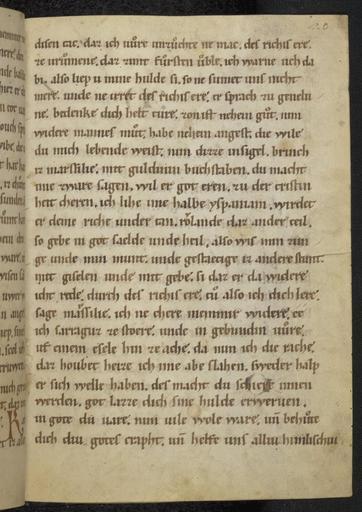 disen tac. daz ich uwͦre unzuchte ne mac. des richis ere.
ze urumene. daz zimt fursten uͤble. ich warne uch da
bi. also liep u mine hulde si. so ne sumet uns nicht
mere. unde ne irret des riches ere. er sprach zu genelu
ne. bedenke dich helt ture. zorn ist nehein guͦt. nim
widere mannes muͦt. habe nehein angest. die wile
du mich lebende weist. nim dizze insigel. brinch
iz marsilie. mit guldinin buchstaben. du macht
ime zware sagen. wil er got eren. zu der cristin
heit cheren. ich lihe ime halbe yspaniam. wirdet
er deme richt under tan. rolande daz ander teil.
so gebe in got sælde unde heil. also wis min zun
ge unde min munt. unde gestætige iz andere stunt.
mit giselen unde mit gebe. si daz er da widere
icht rede. durch des richis ere. tuͦ also ich dich lere.
sage marssilie. ich ne chere niemmir widere. ee
ich sarraguz ze store. unde in gebundin vuͦre.
uf einem esele hin ze ache. da nim ich die rache.
daz houbet heize ich ime abe slahen. sweder halp
er sich welle haben. des macht du scheiff innen
werden. got lazze dich sine hulde erwerven.
in gote du uare. nim uile wole ware. un behuͦte
dich diu gotes crapht. un helfe uns alliu himilischiu